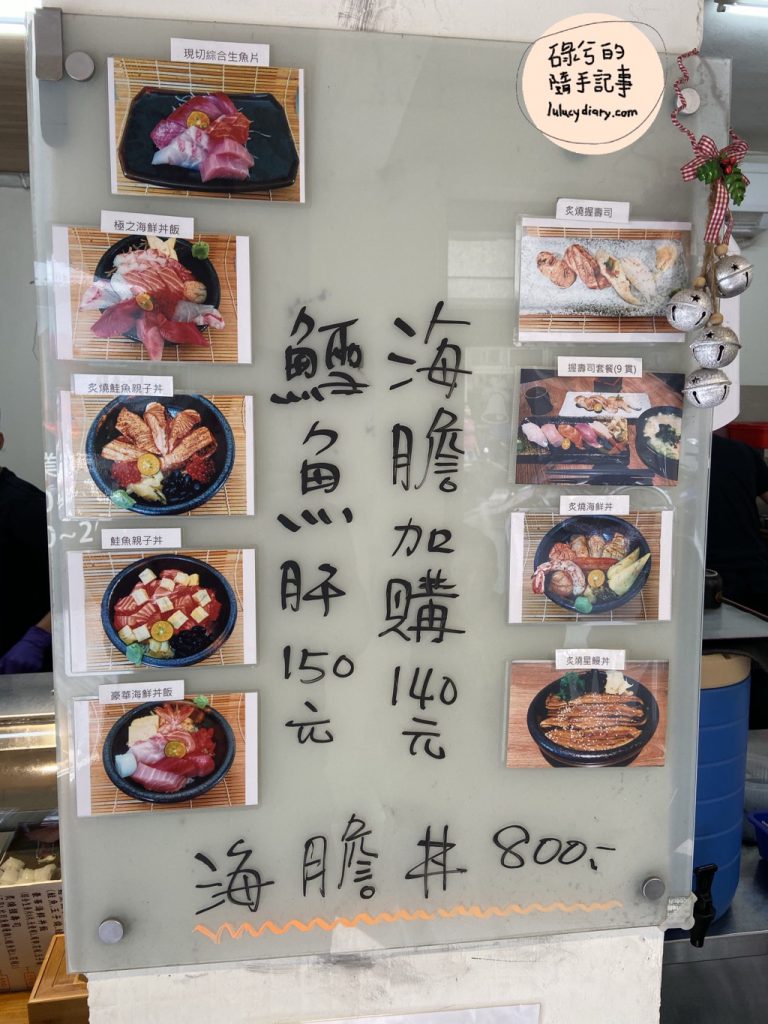 碌兮的
隨手記事
lulucydiary.com
現切綜合生魚片
極之海鮮丼飯
炙燒鮭魚親子丼
鮭魚親子丼
豪華海鮮丼飯
炙燒握壽司
握壽司套餐(9貫)
炙燒海鮮丼
炙燒星鰻丼
海膽加購140元
鱈魚肝150元
海膽丼 800.-